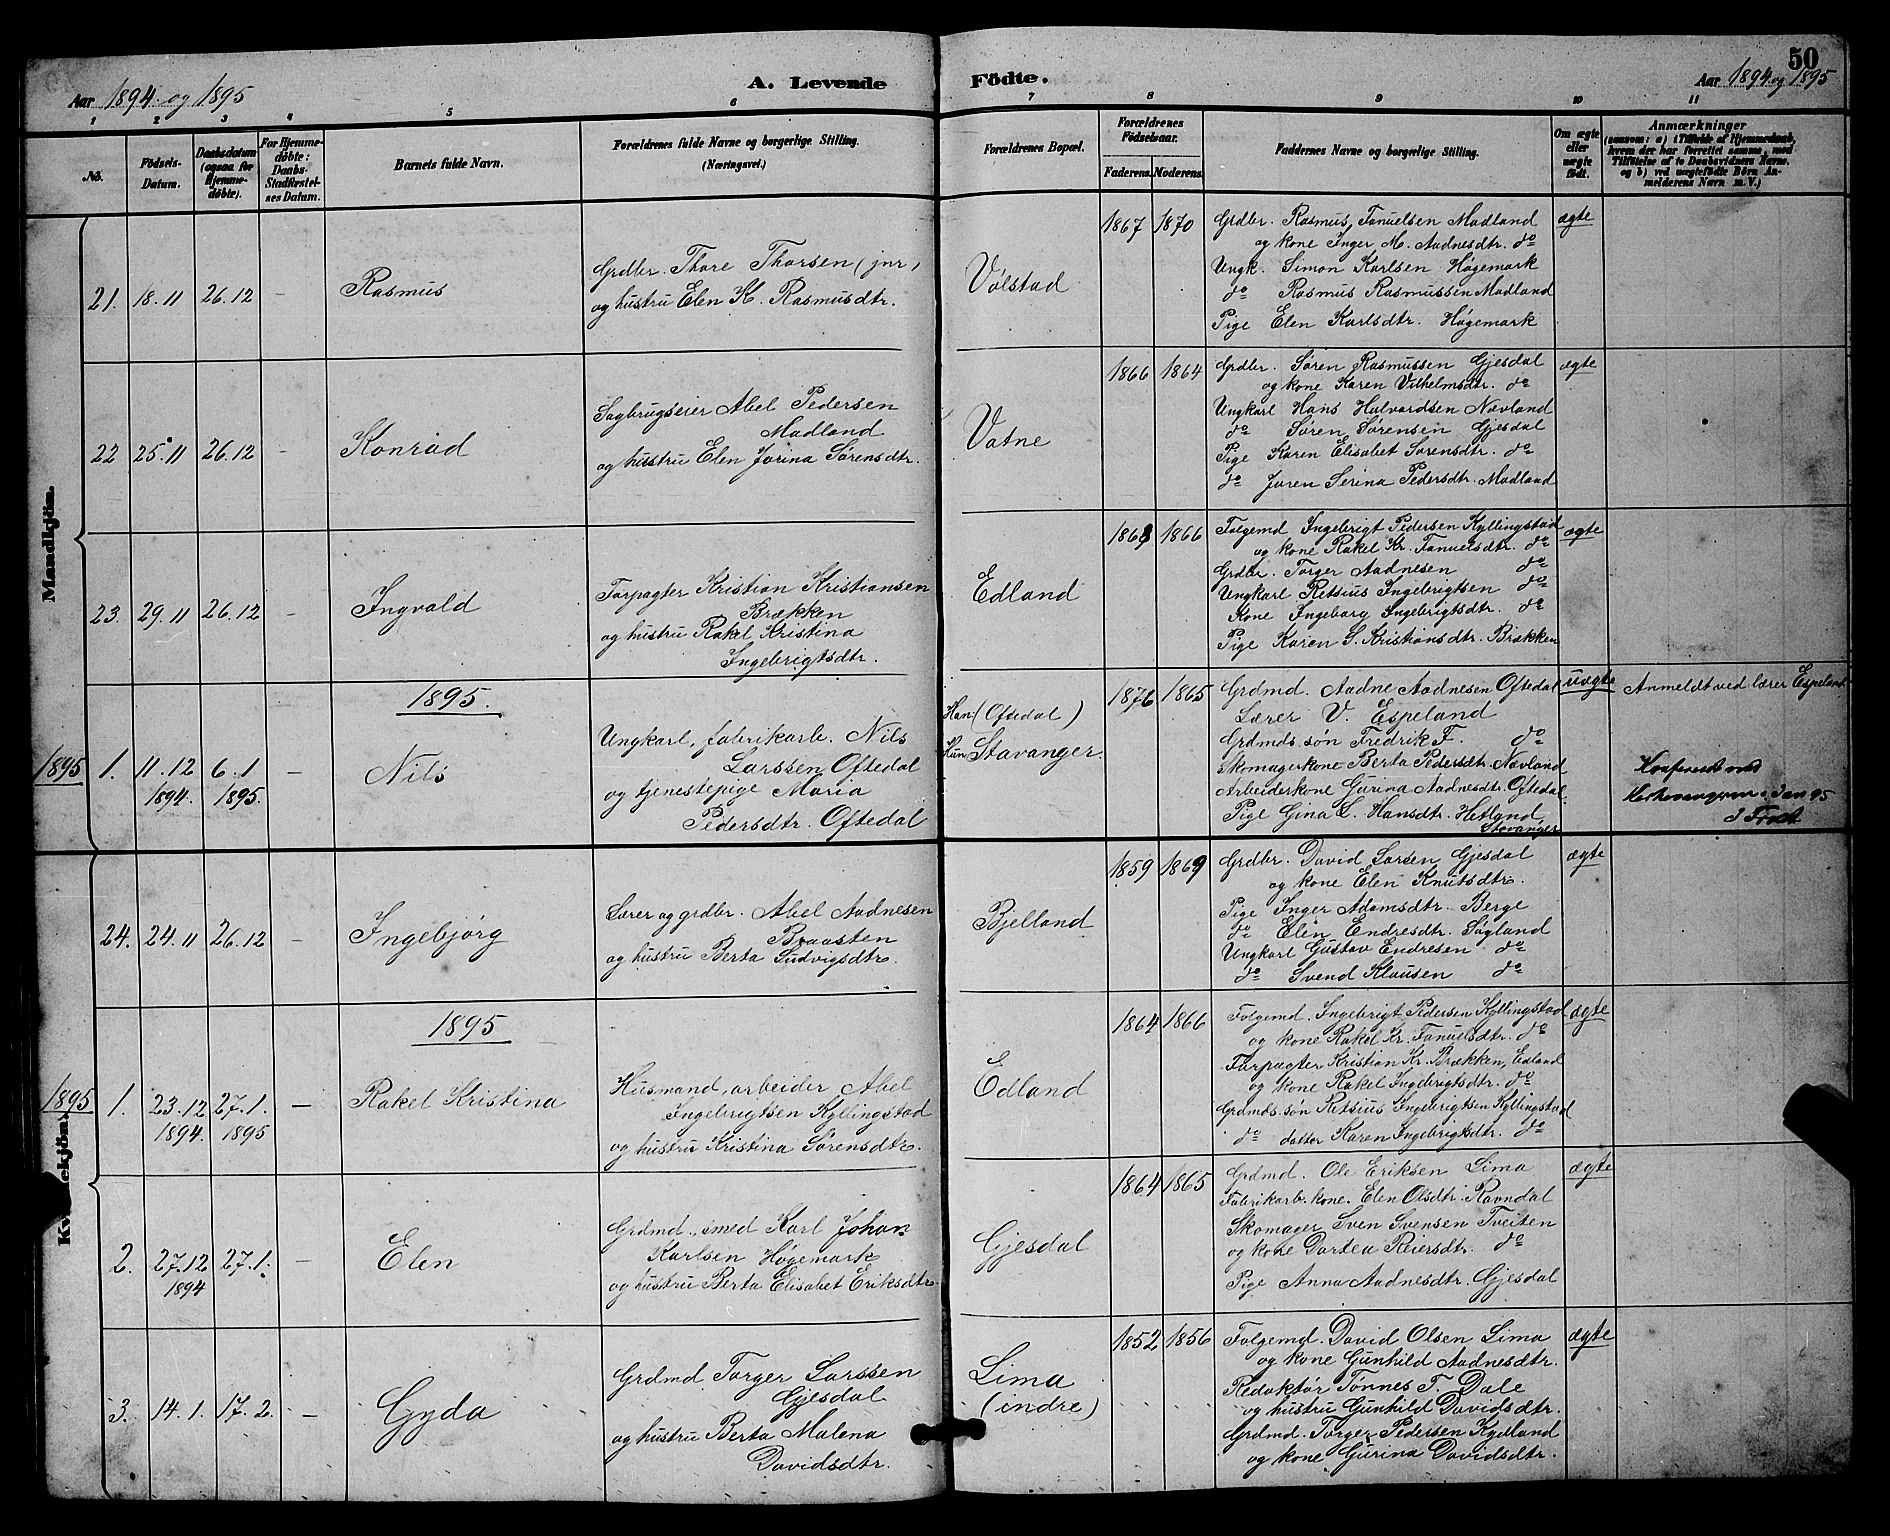 50
Aar 1894 og 1895
A. Levende Födte.
Aar 1894 og 1895
1 2 3 4 5 6 7 8 9 10 11
No.
Födsels-Datum.
Daabsdatum (ogsaa for Hjemmedöbte).
For Hjemmedöbte: Daabs-Stadfæstelses Datum.
Barnets fulde Navn.
Forældrenes fulde Navne og borgerlige Stilling.
(Næringsvei.)
Forældrenes Bopæl.
Forældrenes Födselsaar.
Faderens. Moderens.
Faddernes Navne og borgerlige Stilling.
Om ægte eller uægte födt.
Anmærkninger
(saasom: a) i Tilfælde af Hjemmedaab, hvem der har forrettet samme, med Tilföielse af to Daabsvidners Navne, og b) ved uægtefödte Börn Anmelderens Navn m. V.)
Mandkjön.
21. 18.11 26.12 –
Rasmus
Grdbr. Thore Thorsen (jnr,
og hustru Elen K. Rasmusdtr.
Vølstad
1867 1870
Grdbr. Rasmus Tanuelsen Madland
og kone Inger M. Aadnesdtr. do
Ungk. Simon Karlsen Høgemark
do Rasmus Rasmussen Madland
Pige Elen Karlsdtr. Høgemark
ægte
22 25.11 26.12 –
Konrad
Sagbrugseier Abel Pedersen
Madland
og hustru Elen Jorina Sørensdtr.
Vatne
1866 1864
Grdbr. Søren Rasmussen Gjesdal
og kone Karen Vilhelmsdtr. do
Ungkarl Hans Halvardsen Nævland
do Søren Sørensen Gjesdal
Pige Karen Elisabet Sørensdtr. do
do Joren Serina Pedersdtr. Madland
ægte
23. 29.11 26.12 –
Ingvald
Forpagter Kristian Kristiansen
Brækken
og hustru Rakel Kristina
Ingebrigtsdtr.
Edland
1866
Folgemd Ingebrigt Pedersen Kyllingstad
og kone Rakel Kr. Tanuelsdtr. do
Grdbr. Torger Aadnesen do
Ungkarl Retsius Ingebrigtsen do
Kone Ingeborg Ingebrigtsdtr. do
Pige Karen S. Kristiansdtr. Brækken
ægte
1895.
1895 1. 11.12 6.1 –
1894. 1895.
Nils
Ungkarl, fabrikarb. Nils
Larssen Oftedal
og tjenestepige Maria
Pedersdtr. Oftedal
Han (Oftedal)
Hun Stavanger.
1876 1865
Grdmd. Aadne Aadnesen Oftedal
Lærer V. Espeland
Grdmds. søn Fredrik F. do
Skomagerkone Berta Pedersdtr. Nævland
Arbeiderkone Gurina Aadnesdtr. Oftedal.
Pige Gina C. Hansdtr. Hetland
Stavanger
uægte
Anmeldt ved lærer Espeland
Jan 95
24. 24.11 26.12 –
Ingebjörg
Lærer og grdbr. Abel Aadnesen
Braasten
og hustru Berta Ludvigsdtr.
Bjelland
1859 1869
Grdbr. David Larsen Gjesdal
og kone Elen Knutsdtr.
Pige Inger Adamsdtr. Berge
do Elen Endresdtr. Sagland
Ungkarl Gustav Endresen do
do Svend Klausen do
ægte
1895
1895 1. 23.12 27.1. –
1894. 1895
Rakel Kristina
Husmand, arbeider Abel
Ingebrigtsen Kyllingstad
og hustru Kristina Sørensdtr.
Edland
1864 1866
Folgemd. Ingebrigt Pedersen Kyllingstad
og kone Rakel Kr. Tanuelsdtr. do
Forpagter Kristian Kr. Brækken, Edland
og kone Rakel Ingebrigtsdtr. do
Grdmds. søn Retsius Ingebrigtsen Kyllingstad
do datter Karen Ingebrigtsdtr. do
ægte
2. 27.12 27.1. –
1894
Elen
Grdmd., smed Karl Johan
Karlsen Høgemark
og hustru Berta Elisabet Eriksdtr.
Gjesdal
1864 1865
Grdmd. Ole Eriksen Lima
Fabrikarb. kone. Elen Olsdtr. Ravndal
Skomager Sven Svensen Tveiten
og kone Dortea Reiersdtr. do
Pige Anna Aadnesdtr. Gjesdal
ægte
3. 14.1. 17.2. –
Gyda
Grdmd Torger Larssen
Gjesdal
og hustru Berta Malena
Davidsdtr.
Lima
(indre)
1852 1856
Folgemd. David Olsen Lima
og kone Gunhild Aadnesdtr.
Redaktør Tønnes T. Dale
og hustru Gunhild Davidsdtr.
Grdmd. Torger Pedersen Kydland
og kone Gurina Davidsdtr.
ægte